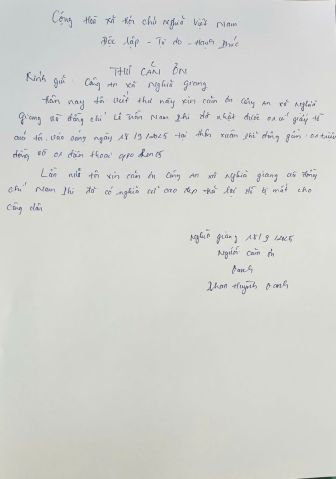 Cộng Hoà xã hội chủ nghĩa Việt Nam
Độc lập - Tự do - Hạnh Phúc
THƯ CẢM ƠN
Kính gửi: Công An xã Nghĩa giang
hôm nay tôi viết thư này xin cảm ơn công an xã Nghĩa
Giang và đồng chí Lê Trần Nam khi đã nhặt được ví giấy tờ
của tôi, vào sáng ngày 18/9/2025 tại thôn xuân phố đông gồm: 01 triệu
đồng và 01 điện thoại oppo
Lần nữa tôi xin cảm ơn công An xã nghĩa giang và đồng
chí Nam khi đã có nghĩa cử cao đẹp trả lại đồ bị mất cho
công dân
Nghĩa giang 18/9/2025
Người cảm ơn
Oanh
Phan Huỳnh Oanh